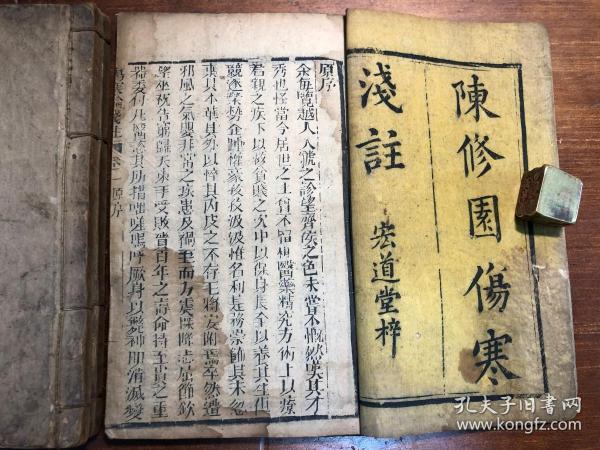 陳修園傷寒
淺註
宏道堂梓
原序
余每覽越人入虢之診望齊侯之色未嘗不慨然歎其才
秀也怪當今居世之士曾不留神醫藥精究方術上以療
君親之疾下以救貧賤之厄中以保身長全以養其生但
競逐榮勢企踵權豪孜孜汲汲惟名利是務崇飾其末忽
棄其本華其外以悴其內皮之不存毛將安附焉卒然遭
邪風之氣嬰非常之疾患及禍至而方震慄降志屈節欽
望巫祝告窮歸天束手受敗賫百年之壽命持至貴之重
器委付凡醫恣其所措咄嗟嗚呼厥身以斃神明消滅變
傷寒論淺註 卷一 原序
孔夫子旧书网
www.kongfz.com